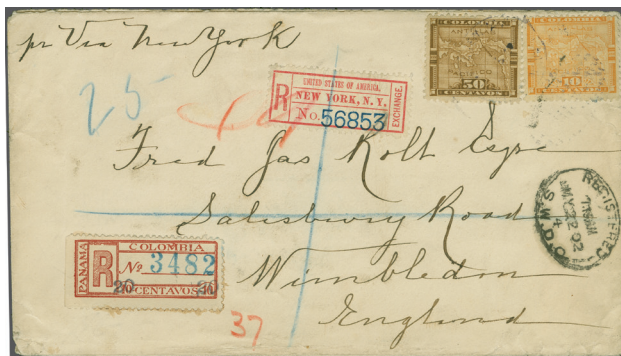 pr Via New York
COLOMBIA
ANTILLAS
PACIFICO
50
CENTAVOS
COLOMBIA
10
CENTAVOS
25
UNITED STATES OF AMERICA,
R
NEW YORK, N. Y.
EXCHANGE.
No. 56853
Fred Jas Rolt Esqre
Salisbury Road
Wimbledon
England
REGISTERED
MY 22 02
S.W.D.O.
PANAMA
R
COLOMBIA
No 3482
20 CENTAVOS 20
37